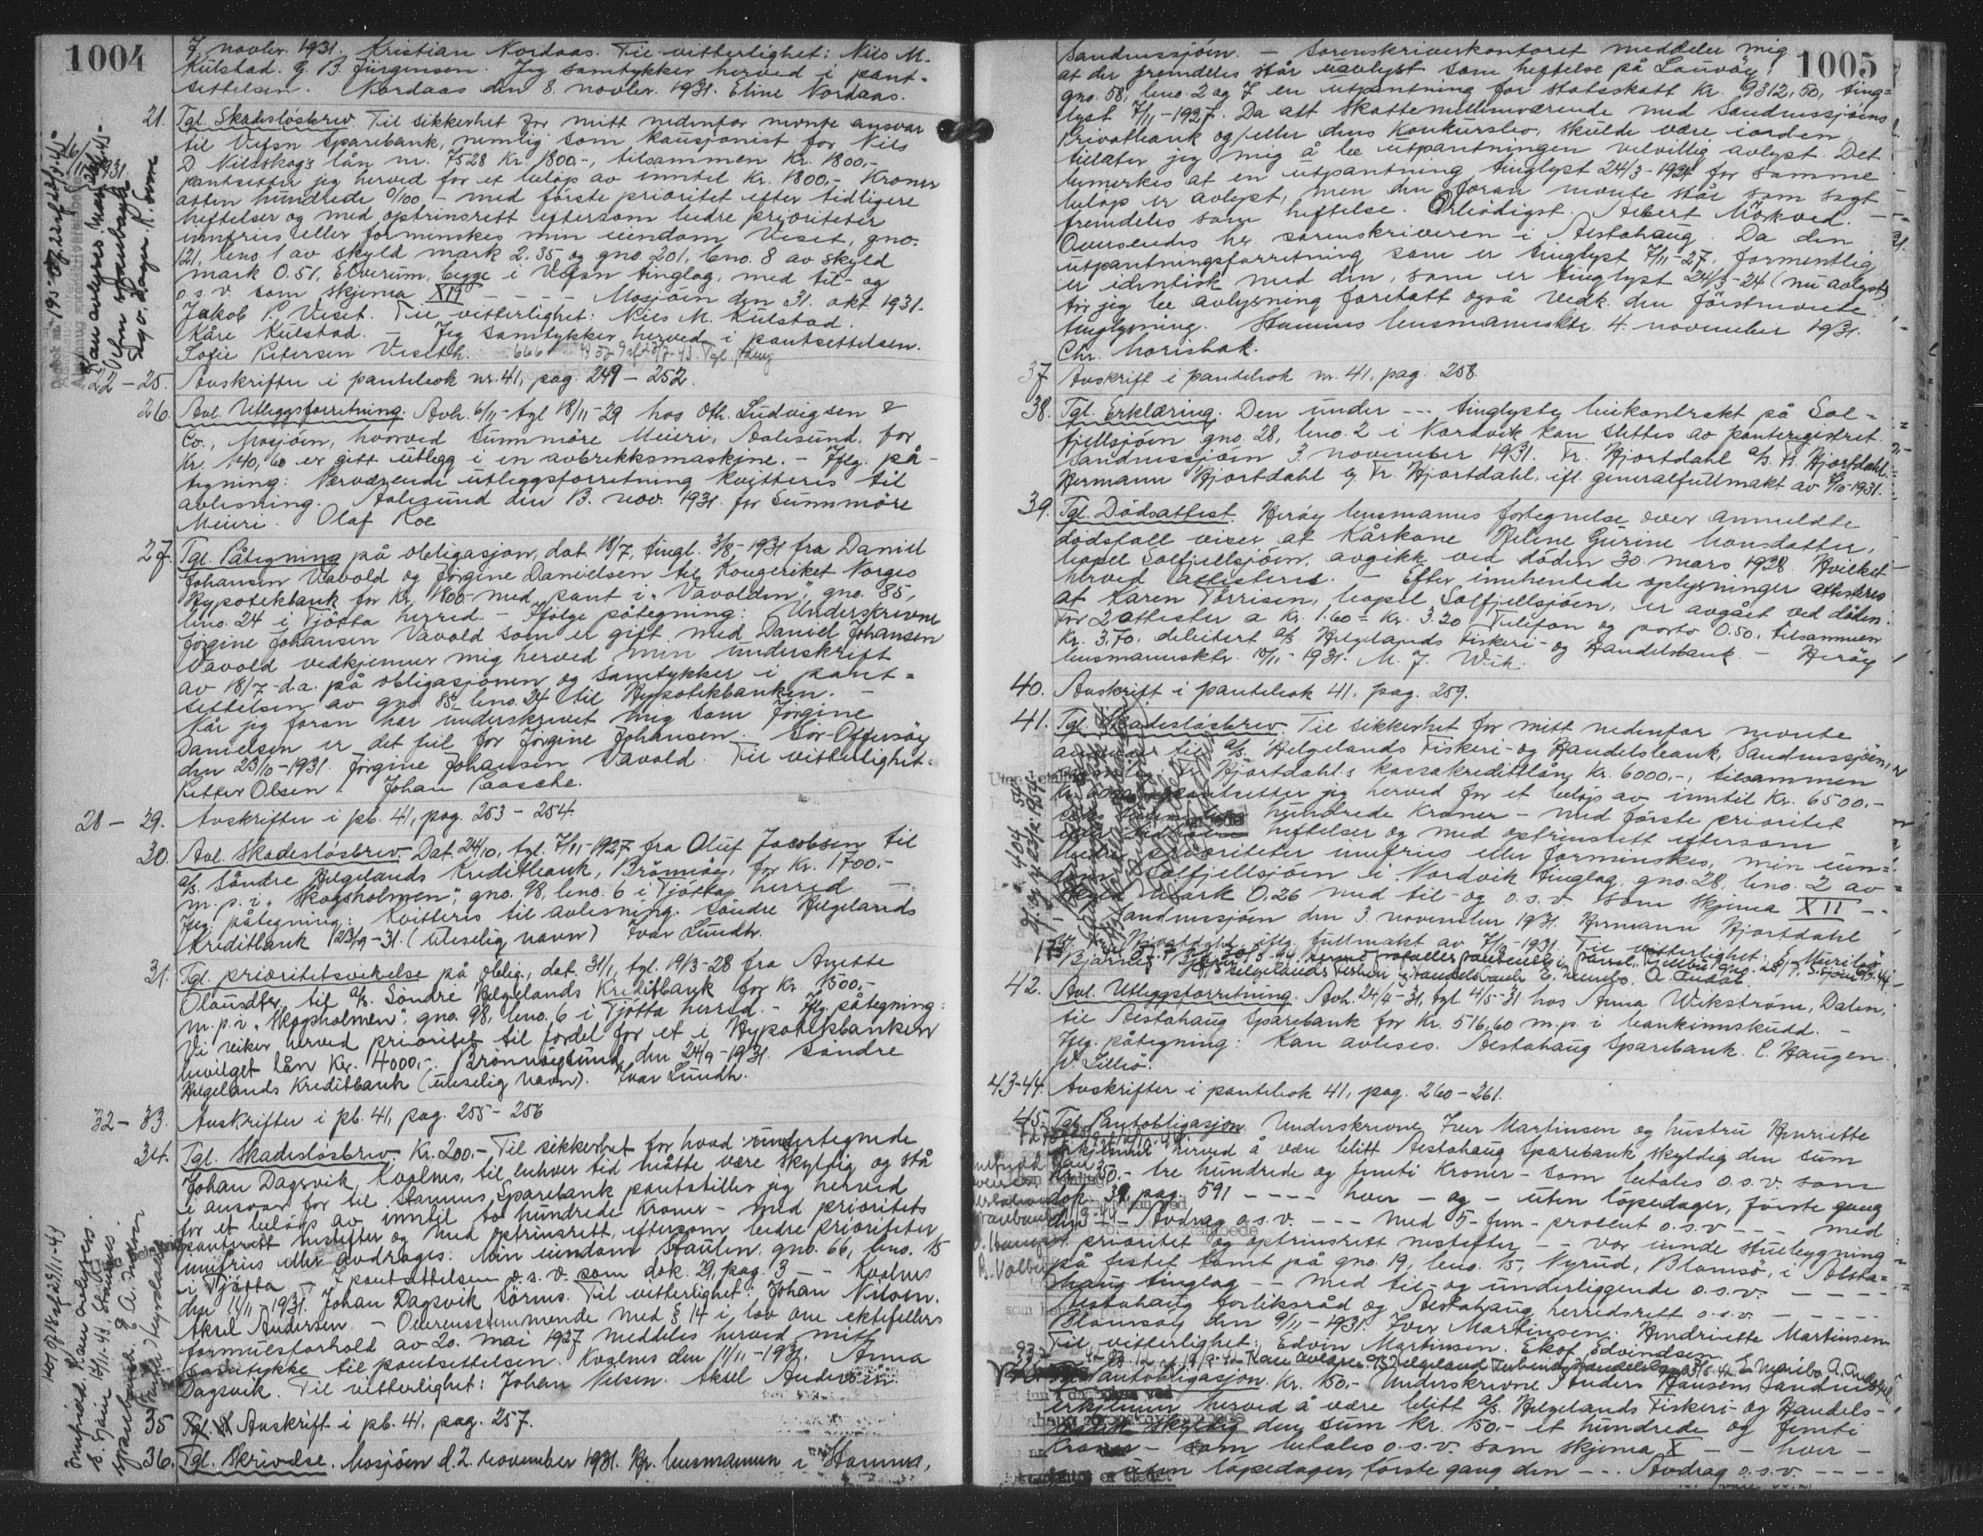 1004
7 novbr. 1931. Kristian Nordaas. Til vitterlighet: Nils M.
Kulstad. G. B. Jürgensen. Jeg samtykker herved i pant-
settelsen. Nordaas den 8. novbr. 1931. Eline Nordaas.
21. Tgl. Skadesløsbrev. Til sikkerhet for mitt nedenfor nevnte ansvar
til Vefsn Sparebank, nemlig som kausjonist for Nils
D. Nilsskogs lån nr. 7528 Kr 1800-, tilsammen Kr. 1800.-
pantsetter jeg herved for et beløp av inntil Kr. 1800.- Kroner
atten hundrede 0/100 - med første prioritet efter tidligere
heftelser og med optrinsrett eftersom bedre prioriteter
innfries eller forminskes min eiendom Veset, gno.
121, bno. 1 av skyld mark 2.35 og gno. 201, bno. 8 av skyld
mark 0.51, Elverum, begge i Vefsn tinglag, med til- og
o.s.v. som skjema XII - - - - - Mosjøen den 31. okt 1931.
Jakob P. Veset. Til vitterlighet: Nils M. Kulstad.
Kåre Kulstad. - Jeg samtykker herved i pantsettelsen.
Sofie Petersen Veseth.
22 - 25. Avskrifter i pantebok nr. 41, pag. 249 - 252.
26. Avl. Utleggsforretning. Avh. 6/11- tgl 18/11-29 hos Oth. Ludvigsen &
Co., Mosjøen, hvorved Sunnmøre Meieri, Aalesund. for
Kr. 140,60 er gitt utlegg i en avtrekksmaskine. - Iflg. på-
tegning: Nærværende utleggsforretning kvitteris til
avlesning. Aalesund den 13. nov. 1931. for Sunnmøre
Meieri. Olaf Roe
27. Tgl. Påtegning på obligasjon, dat 18/7, tingl. 3/8-1931 fra Daniel
Johansen Vavold og Jørgine Danielsen til Kongeriket Norges
Hypotekbank for Kr. 1800- med pant i „Vavolden", gno. 85,
bno. 24 i Tjøtta herred. - Ifølge påtegning: Underskrivne
Jørgine Johansen Vavold som er gift med Daniel Johansen
Vavold vedkjenner mig herved min underskrift
av 18/7-d.a. på obligasjonen og samtykker i pant-
settelsen av gno. 85 bno. 24 til Hypotekbanken. -
Når jeg foran har underskrevet mig som Jørgine
Danielsen er det feil for Jørgine Johansen. Sør-Offersøy
den 23/10-1931. Jørgine Johansen Vavold. Til vitterlighet:
Petter Olsen Johan Paasche.
28 - 29. Avskrifter i pb. 41, pag. 253 - 254.
30. Avl. Skadesløsbrev. Dat. 24/10, tgl. 7/11-1927 fra Oluf Jacobsen til
a/s Søndre Helgelands Kreditbank, Brønnøy, for Kr. 1700.-
m. p. i „Skogsholmen", gno. 98, bno. 6 i Tjøtta herred
Iflg. påtegning: Kvitteris til avlesning. Søndre Helgelands
Kreditbank 23/9-31. (uleselig navn) Ivar Lundh.
31. Tgl. prioritetsvikelse på oblig., dat. 31/1, tgl. 19/3-28 fra Anette
Olausdtr, til a/s Søndre Helgelands Kreditbank for Kr. 1500.-
m. p. i „Skogsholmen", gno. 98, bno. 6 i Tjøtta herred. - Iflg. påtegning:
Vi viker herved prioritet til fordel for et i Hypotekbanken
bevilget lån Kr. 4000.-. Brønnøysund den 24/9-1931. Søndre
Helgelands Kreditbank (uleselig navn). Ivar Lundh.
32 - 33. Avskrifter i pb. 41, pag. 255 - 256
34. Tgl. Skadesløsbrev. Kr. 200.- Til sikkerhet for hvad undertegnede
Johan Dagsvik, Kvalnes, til enhver tid måtte være skyldig og stå
i ansvar for til Stamnes Sparebank pantstiller jeg herved
for et beløp av inntil to hundrede Kroner - med prioritets
panterett nestefter og med optrinsrett, eftersom bedre prioriteter
innfries eller avdrages: Min eiendom Staulen gno. 66, bno. 15
i Tjøtta - pantsettelsen o.s.v. som dok. 29, pag. 3 - - Kvalnes
den 11/11-1931. Johan Dagsvik Sørnes. Til vitterlighet: Johan Nilsen.
Aksel Andersen. - Overensstemmende med § 14 i lov om ektefellers
formuesforhold av 20. mai 1927 meddeles herved mitt
samtykke til pantsettelsen. Kvalnes den 11/11-1931. Anna
Dagsvik. Til vitterlighet: Johan Nilsen. Aksel Andersen
35 Tgl. Avskrift i pb. 41, pag. 257.
36. Tgl. Skrivelse. Mosjøen d. 2. november 1931. Hr. lensmannen i Stamnes,
1005
Sandnessjøen. - Sorenskriverkontoret meddeler mig
at der fremdeles står uavlyst som heftelse på Lauvøy
gno. 58, bno. 2 og 7 en utpantning for statsskatt Kr. 9312,50, ting-
lyst 7/11-1927. Da alt skattemellemværende med Sandnessjøens
Privatbank og/eller dens konkursbo, skulde være iorden
tillater jeg mig å be utpantningen velvillig avlyst. Det
bemerkes at en utpantning tinglyst 24/3-1924 for samme
beløp er avlyst, men den foran nevnte står som sagt
fremdeles som heftelse. Ærbødigst. Albert Mörkved. -
Oversendes hr. sorenskriveren i Alstahaug. Da den
utpantningsforretning som er tinglyst 7/11-27, formentlig
er identisk med den, som er tinglyst 24/3-24 (nu avlyst)
tør jeg be avlysning foretatt også vedk. den førstnevnte
tinglysning. Stamnes lensmannsktr. 4. november 1931.
Chr. Morisbak.
37 Avskrift i pantebok nr. 41, pag. 258.
38. Tgl. Erklæring. Den under --- tinglyste leiekontrakt på Sol-
fjellsjøen gno. 28, bno. 2 i Nordvik kan slettes av panteregistret.
Sandnessjøen 3. november 1931. Fr. Hjortdahl a/s. H. Hjortdahl.
Hermann Hjortdahl eft. Fr. Hjortdahl, ifl. generalfullmakt av 7/10-1931.
39. Tgl. Dødsattest. Herøy lensmanns fortegnelse over anmeldte
dødsfall viser at Kårkone Heline Gurine Hansdatter,
bopel Solfjellsjøen, avgikk ved døden 30. mars 1928. Hvilket
herved attesteres. - Efter innhentede oplysninger attesteres
at Karen Torrisen, bopel Solfjellsjøen, er avgått ved døden.
For 2 attester a Kr. 1.60 = Kr. 3.20 Telefon og porto 0.50. tilsammen
Kr. 3.70. debitert a/s Helgelands Fiskeri- og Handelsbank. - Herøy
lensmannsktr. 10/11-1931. M. J. Wik.
40. Avskrift i pantebok 41, pag. 259.
41. Tgl. Skadesløsbrev. Til sikkerhet for mitt nedenfor nevnte
ansvar til a/s. Helgelands Fiskeri- og Handelsbank, Sandnessjøen,
Hjortdahl's kassakredittlån, Kr. 6000.-, tilsammen
pantsetter jeg herved for et beløp av inntil Kr. 6500.-
hundrede Kroner - med første prioritet
heftelser og med optrinsrett eftersom
bedre prioriteter innfries eller forminskes, min eien-
dom Solfjellsjøen i Nordvik tinglag, gno. 28, bno. 2 av
skyld mark 0.26 med til- og o.s.v. som skjema XII - -
Sandnessjøen den 3. november 1931. Hermann Hjortdahl
Hjortdahl, iflg. fullmakt av 7/10-1931. Til vitterlighet: E. Maribo
42. Avl. Utleggsforretning. Avh. 24/4-31, tgl 4/5-31 hos Anna Wikstrøm, Dalen,
til Alstahaug Sparebank for Kr. 516,60 m.p. i bankinnskudd. -
Iflg. påtegning: Kan avleses. Alstahaug Sparebank. C. Haugen.
W. Lillis.
43-44. Avskrifter i pantebok 41, pag. 260 - 261.
45. Tgl. Pantobligasjon. Underskrivne Iver Martinsen og hustru Henriette
erkjenner herved å være blitt Alstahaug Sparebank skyldig den sum
Kr. 350.- tre hundrede og femti Kroner - som betales o.s.v. som
dok. 39 pag. 591 - - - - hver - og - uten løpedager, første gang
den - - Avdrag o.s.v. - - - med 5- fem - procent o.s.v. - - - med
prioritet og optrinsrett nestefter - - vor eiende stuebygning
på festet tomt på gno. 19, bno. 15, Nyrud, Blomsø, i Alsta-
haug tinglag - - med til- og underliggende o.s.v. - - - -
Alstahaug forliksråd og Alstahaug herredsrett o.s.v. - - - -
Blomsøy den 9/11-1931. Iver Martinsen. Hendriette Martinsen
Til vitterlighet: Edvin Martinsen. Ekof Edvindsen
Pantobligasjon. Kr. 150.- Underskrevne Anders Hansen, Sandnes
erkjenner herved å være blitt a/s. Helgelands Fiskeri- og Handels-
bank skyldig den sum Kr. 150.- et hundrede og femti
Kroner - som betales o.s.v. som skjema X - - hver -
uten løpedager, første gang den --- Avdrag o.s.v. - - - -